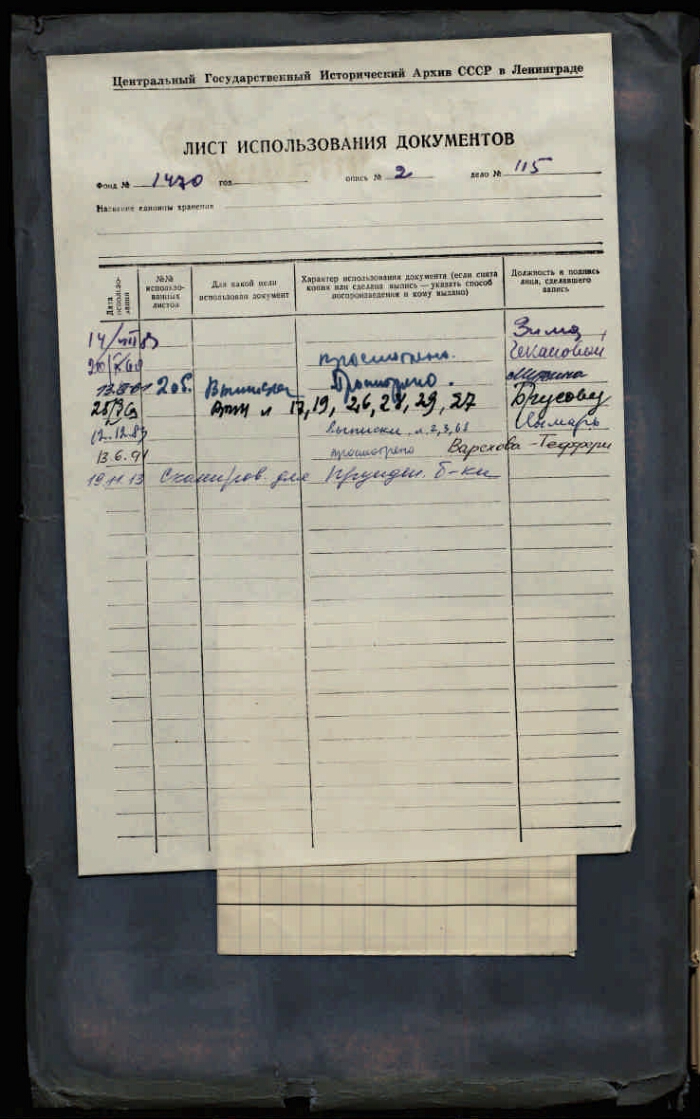 Центральный Государственный Исторический Архив СССР в Ленинграде
ЛИСТ ИСПОЛЬЗОВАНИЯ ДОКУМЕНТОВ
Фонд № 1470 год опись № 2 дело № 115
Название единицы хранения
Дата использования
№№ использо-
ванных
листов
Для какой цели
использован документ
Характер использования документа (если снята
копия или сделана выпись — указать способ
воспроизведения и кому выдано)
Должность и подпись
лица, сделавшего
запись
Зима
просмотрено.
2 об. Просмотрено.
л 17, 19, 26, 28, 29, 27 Брусову
12.12.89 выписки л. 2, 3, 68
13.6.91 просмотрено
19.11.13 Сканиров. для Президен. б-ки